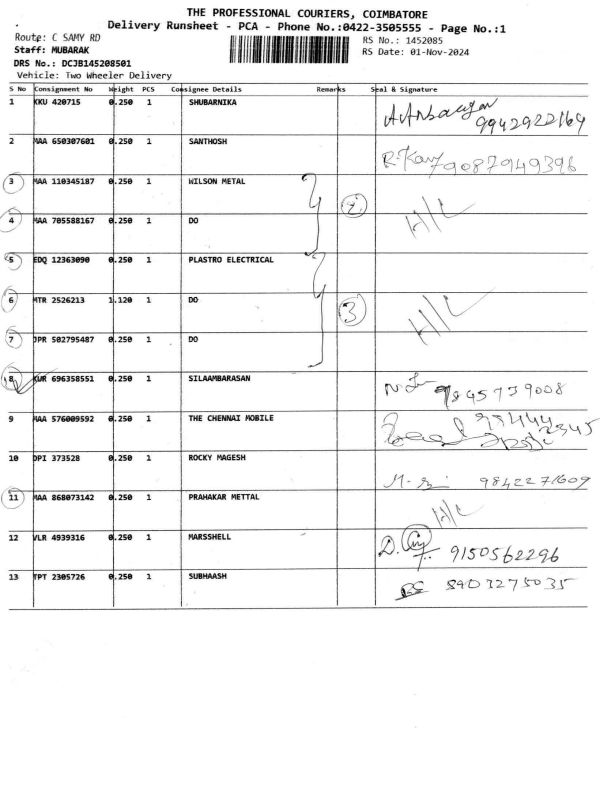 THE PROFESSIONAL COURIERS, COIMBATORE
Delivery Runsheet - PCA - Phone No.:0422-3505555 - Page No.:1
Route: C SAMY RD
RS No.: 1452085
Staff: MUBARAK
RS Date: 01-Nov-2024
DRS No.: DCJB145208501
Vehicle: Two Wheeler Delivery
S No Consignment No Weight PCS Consignee Details Remarks Seal & Signature
1 KKU 420715 0.250 1 SHUBARNIKA
9942922164
2 MAA 650307601 0.250 1 SANTHOSH
R. 79087949396
3 MAA 110345187 0.250 1 WILSON METAL
2 H/L
4 MAA 705588167 0.250 1 DO
5 EDQ 12363090 0.250 1 PLASTRO ELECTRICAL
6 MTR 2526213 1.120 1 DO 3 H/L
7 JPR 502795487 0.250 1 DO
8 KUR 696358551 0.250 1 SILAAMBARASAN
9845739008
9 MAA 576009592 0.250 1 THE CHENNAI MOBILE
10 DPI 373528 0.250 1 ROCKY MAGESH
9842271609
11 MAA 868073142 0.250 1 PRAHAKAR METTAL H/L
12 VLR 4939316 0.250 1 MARSSHELL
D. 9150562296
13 TPT 2305726 0.250 1 SUBHAASH 8903275035